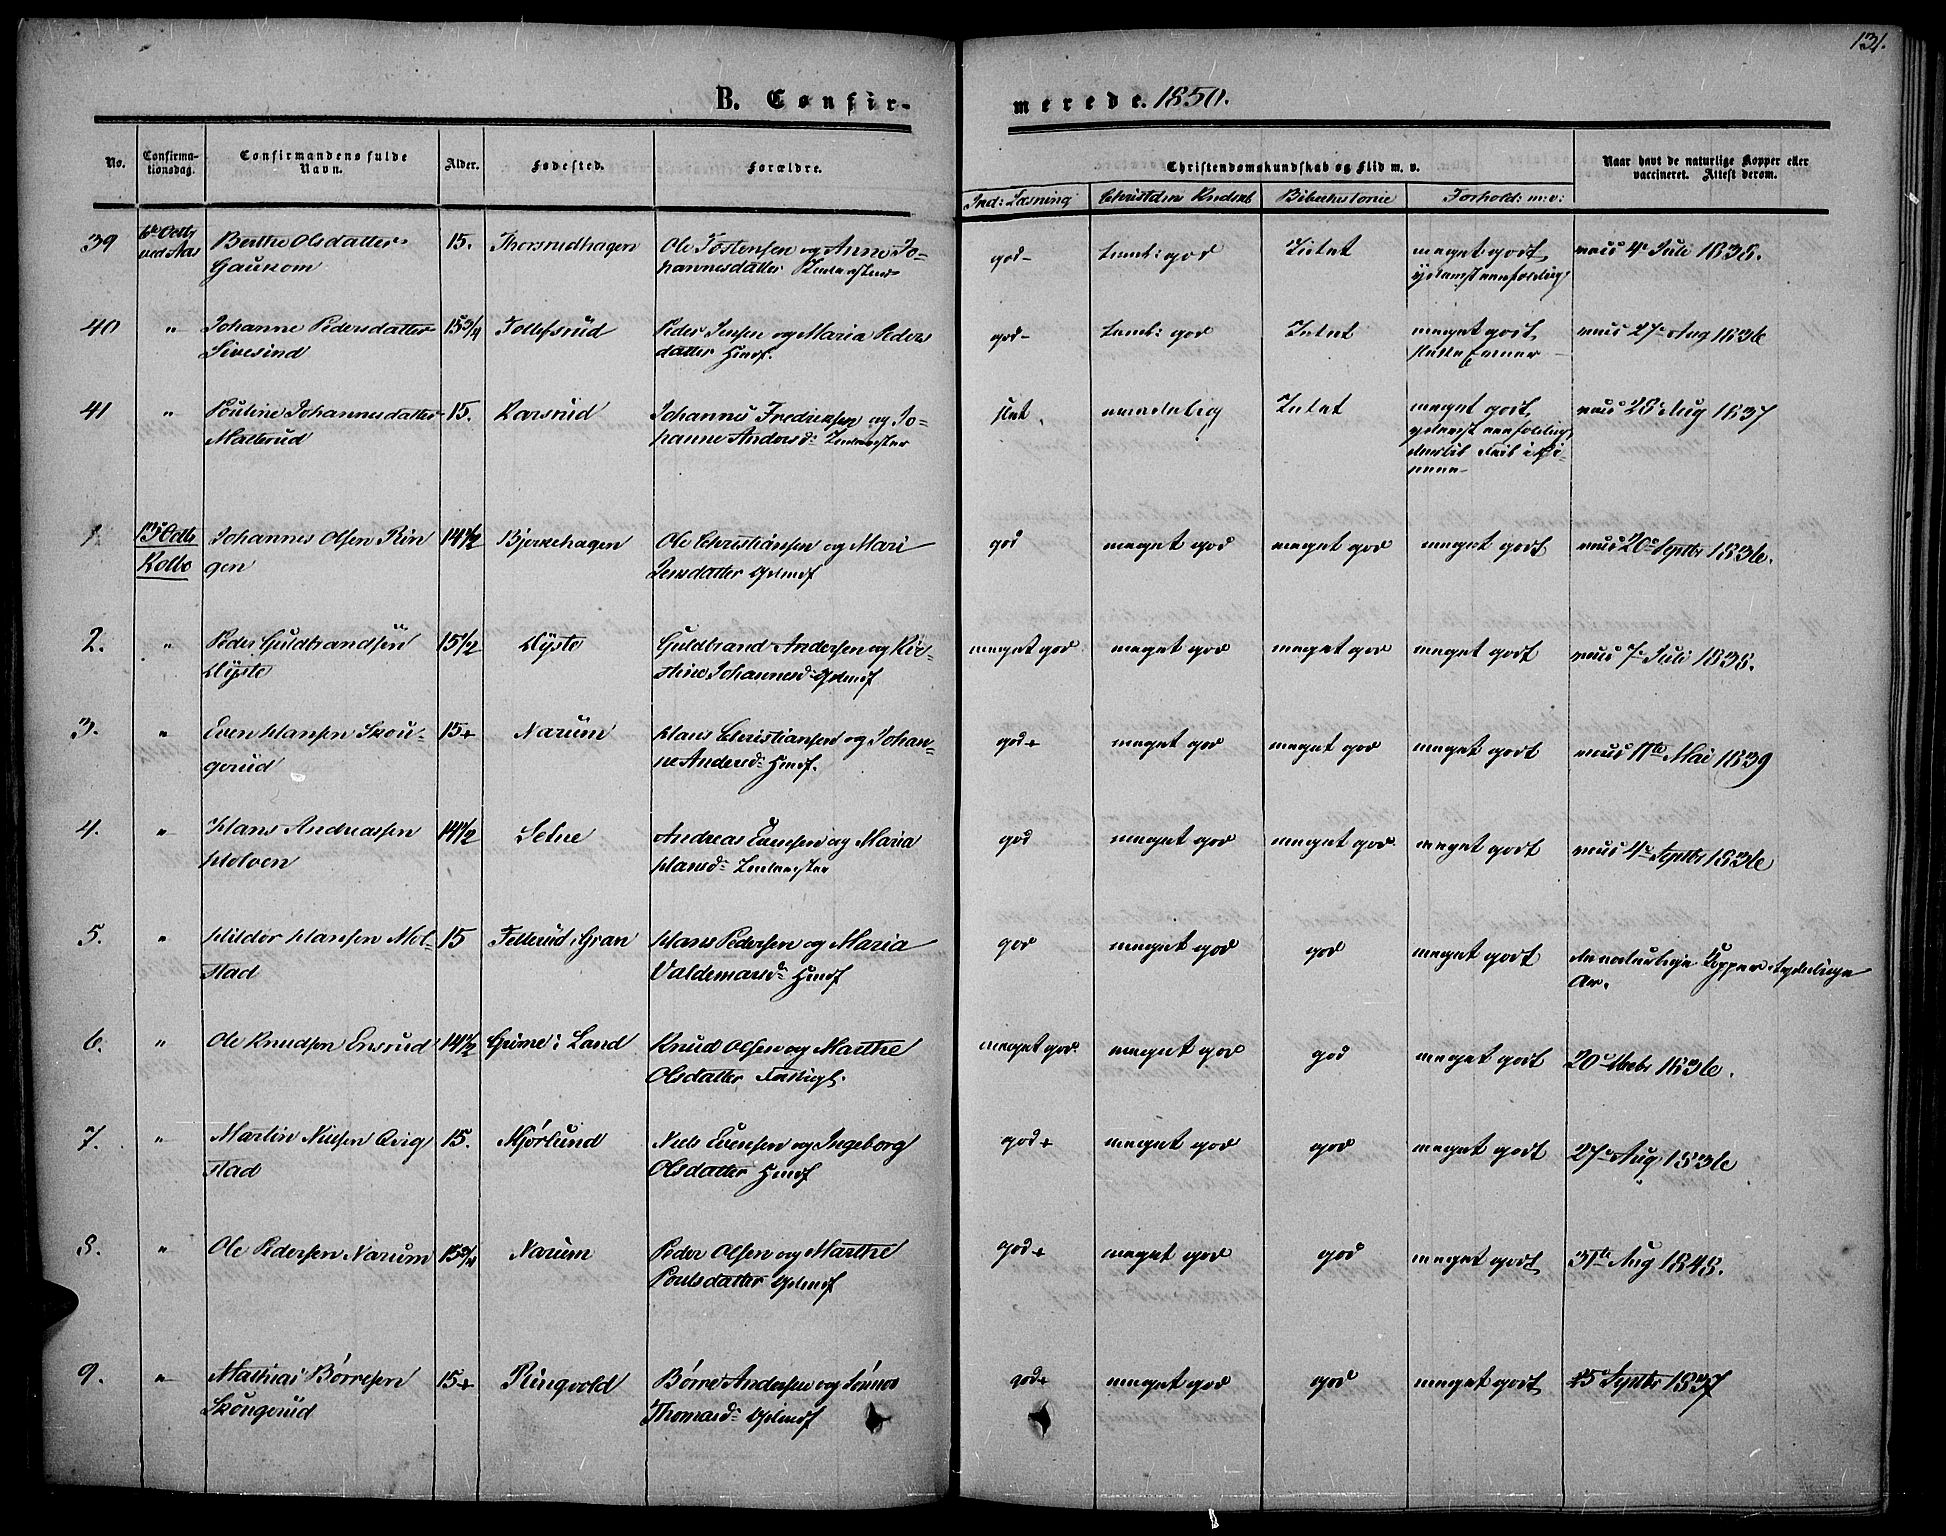 131.
B. Confir-
merede. 1850.
No.
Confirma-
tionsdag.
Confirmandens fulde
Navn.
Alder.
Fødested.
Forældre.
Christendomskundskab og Flid m. v.
Naar havt de naturlige Kopper eller
vaccineret. Attest derom.
Ind: Læsning
Christdms Kundsk
Bibelhistorie
Forhold: m: v:
39
6te Octbr
ved Aas
Berthe Olsdatter
Gaukom
15.
Thorsrudhagen
Ole Tostensen og Anne Jo-
hannesdatter
god
god
Intet
meget godt
4 Juli 1835.
40
"
Johanne Pedersdatter
Sivesind
15 3/4
Tollefsrud
Peder Jensen og Maria Peders
datter Huusf.
god
god
Intet
meget godt
27 Aug 1836
41
"
Pouline Johannesdatter
Mallerud
15.
Karsrud
Johannes Fredriksen og Jo-
hanne Andersd:
slet
maadelig
Intet
meget godt
Aug 1837
1
13 Octb
Kolbo
Johannes Olsen Rin
gen
14 1/2
Bjerkehagen
Ole Christiansen og Mari
Jensdatter
god
meget god
meget god
meget godt
20 Septbr 1836.
2.
"
Peder Guldbrandsen
Dyste
15 1/2
Dyste
Guldbrand Andersen og Kir-
stine Johannesd:
meget god
meget god
meget god
meget godt
7 Juli 1835.
3.
"
Even Hansen Skou-
gerud
15+
Narum
Hans Christiansen og Johan-
ne Andersd: Huusf.
god+
meget god
meget god
meget godt
11te Mai 1839
4.
"
Hans Andreassen
Holven
14 1/2
Setne
Andreas Evensen og Maria
Hansd:
god
meget god
meget god
meget godt
4 Septbr 1836
5.
"
Hildor Hansen Mol-
stad
15
Fellerud i Gran
Hans Pedersen og Maria
Valdemarsd: Huusf
god
meget god
god
meget godt
de naturlige Kopper tydelige
Ar.
6.
"
Ole Knudsen Ensrud
14 1/2
Grime i Land
Knud Olsen og Marthe
Olsdatter
meget god
meget god
god
meget godt
1836.
7.
"
Martin Nielsen Qvig
stad
15.
Mjørlund
Niels Evensen og Ingeborg
Olsdatter Huusf
god+
meget god
god
meget godt
27 Aug 1836
8.
"
Ole Pedersen Narum
15 3/4
Narum
Peder Olsen og Marthe
Poulsdatter
god+
meget god
god
meget godt
31te Aug 1848.
9.
"
Mathias Børresen
Skougerud
15+
Ringvold
Børre Andersen og
Thomasd:
god+
meget god
god
meget godt
Septbr 1837